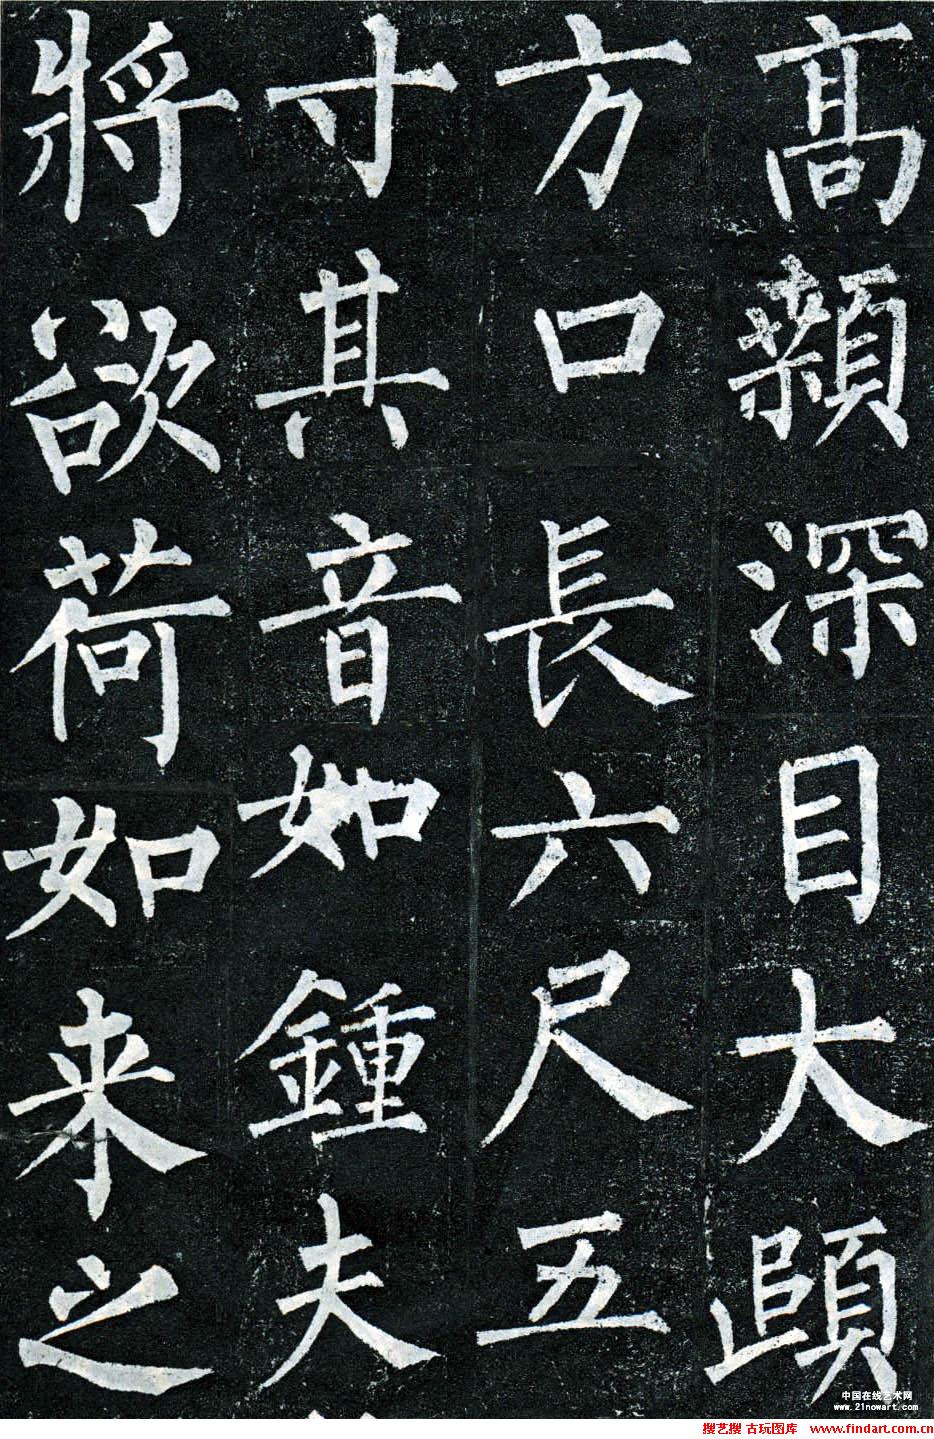 髙顙深目大頤
方口長六尺五
寸其音如鍾夫
將欲荷如来之
中国在线艺术网
www.21nowart.com
搜艺搜 古玩图库 www.findart.com.cn